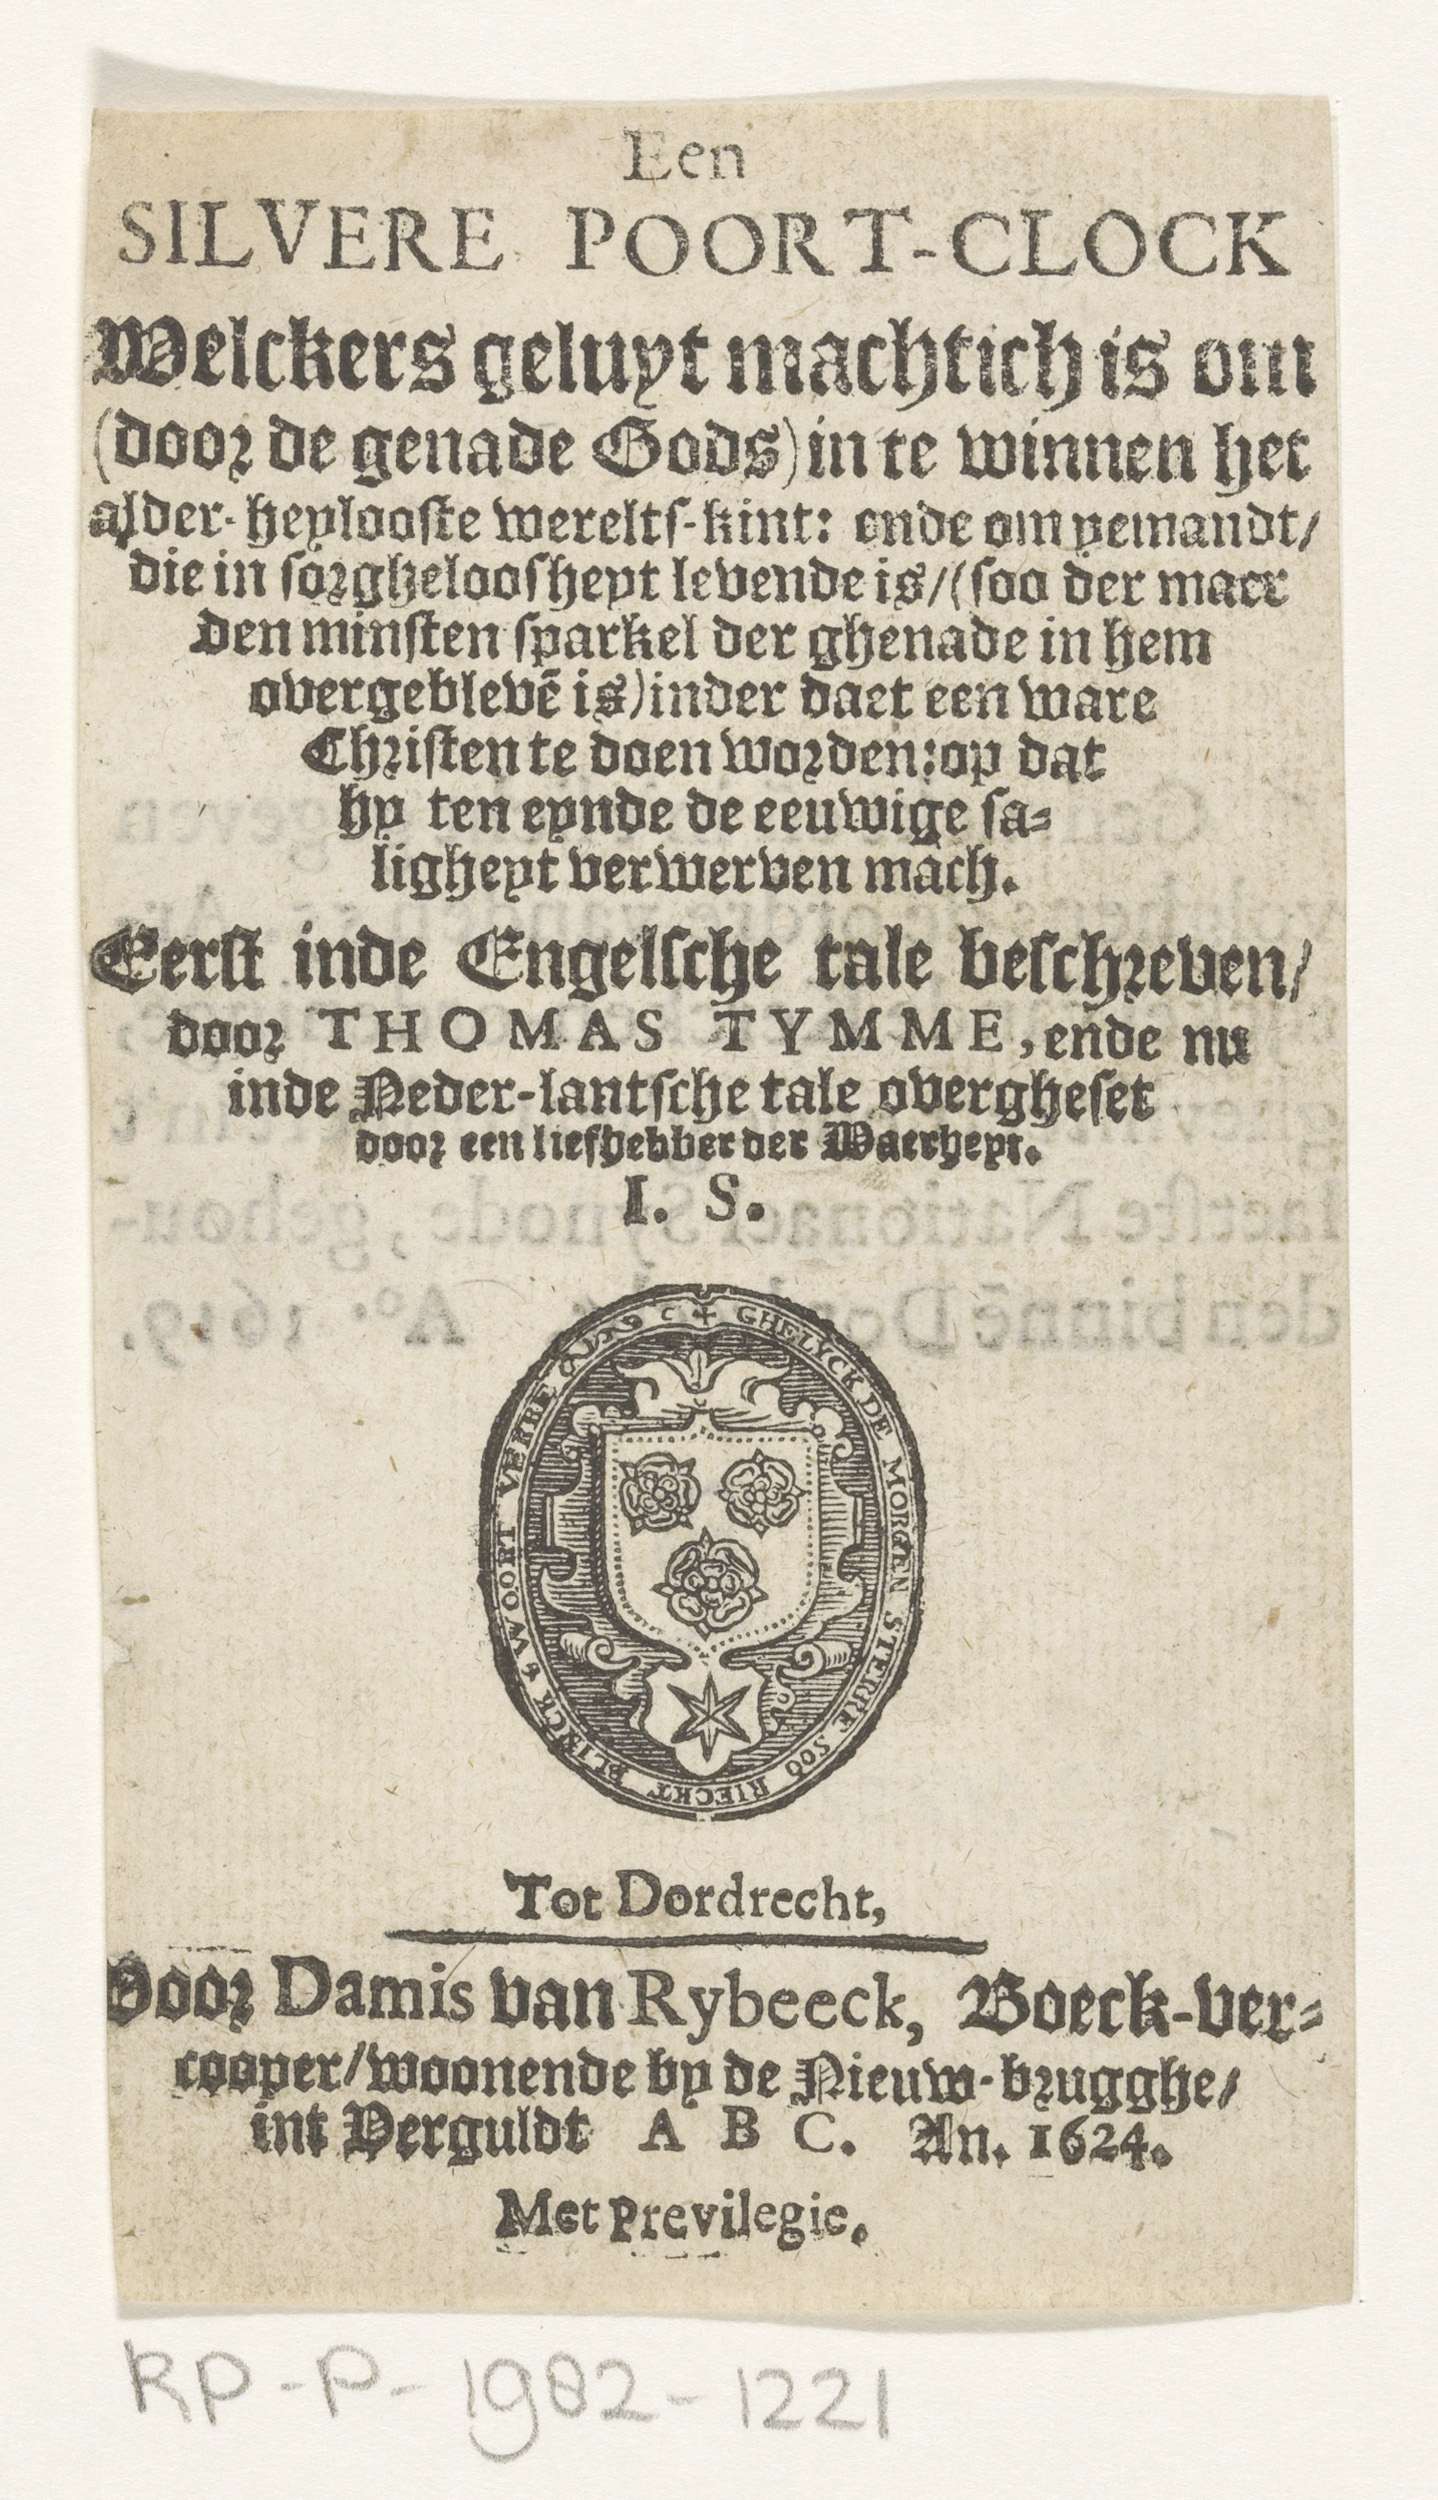 Een
SILVERE POORT-CLOCK
Welckers geluyt machtich is om
(door de genade Gods) in te winnen het
alder-heylooste werelts-kint: ende om yemandt/
die in sorgheloosheyt levende is/(soo der maer
den minsten sparkel der ghenade in hem
overgeblevē is) inder daet een ware
Christen te doen worden: op dat
hy ten eynde de eeuwige sa-
ligheyt verwerven mach.
Eerst inde Engelsche tale beschreven/
door THOMAS TYMME, ende nu
inde Neder-lantsche tale overgheset
door een liefhebber der Waerheyt.
I. S.
GHELYCK DE MORGEN STERRE SOO RIECKT BLINCK & WOORT VEERE
Tot Dordrecht,
Door Damis van Rybeeck, Boeck-ver-
cooper/woonende by de Nieuw-brugghe/
int Verguldt A B C. An. 1624.
Met Previlegie.
RP-P-1982-1221